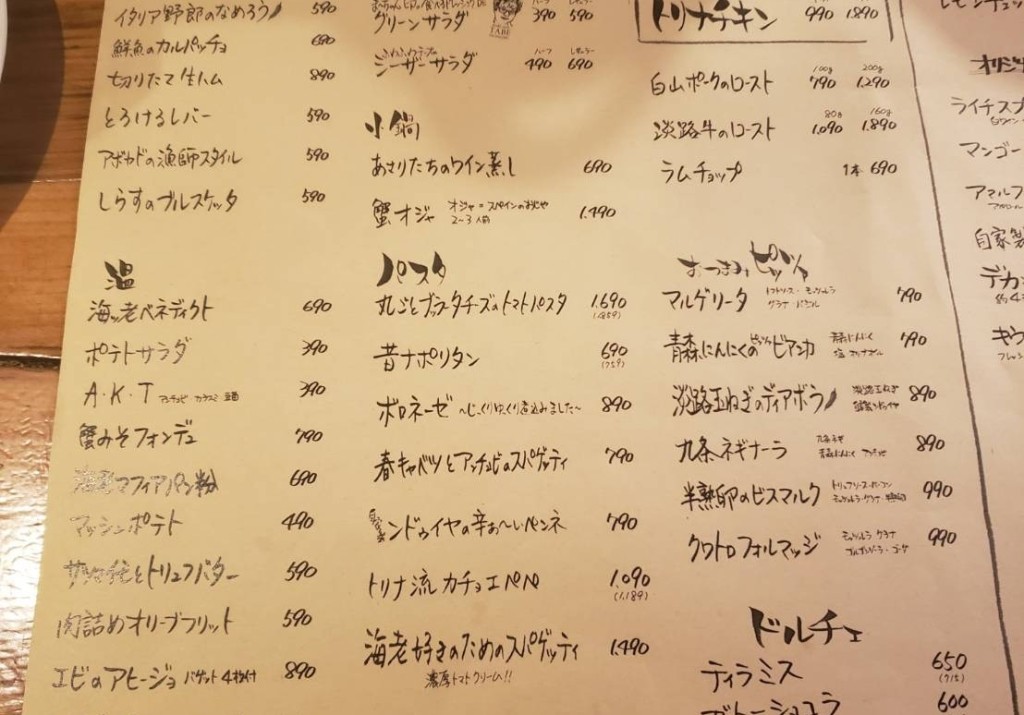 イタリア野郎のなめろう 590
鮮魚のカルパッチョ 690
切りたて生ハム 890
とろけるレバー 590
アボカドの漁師スタイル 590
しらすのブルスケッタ 590
温
海老ベネディクト 690
ポテトサラダ 390
A.K.T 390
蟹みそフォンデュ 790
マフィアパン粉 690
マッシュポテト 490
サツマイモとトリュフバター 590
肉詰めオリーブフリット 590
エビのアヒージョ バゲット4枚付 890
グリーンサラダ ハーフ 390 レギュラー 590
TABE
シーザーサラダ ハーフ 490 レギュラー 690
小鍋
あさりたちのワイン蒸し 690
蟹オジャ オジャ=スペインのおじや 2〜3人前 1.490
パスタ
丸ごとブッラータチーズのトマトパスタ 1.690
(1.859)
昔ナポリタン 690
(759)
ボロネーゼ 〜じっくりゆっくり煮込みました〜 890
春キャベツとアンチョビのスパゲッティ 790
ンドゥイヤの辛お〜いペンネ 790
トリナ流カチョエペペ 1.090
(1.189)
海老好きのためのスパゲッティ 1.490
濃厚トマトクリーム!!
トリナチキン 990 1.890
白山ポークのロースト 100g 790 200g 1.290
淡路牛のロースト 80g 1.090 160g 1.890
ラムチョップ 1本 690
おつまみピッツァ
マルゲリータ トマトソース・モッツァレラ グラナ バジル 790
青森にんにくのビアンカ 790
淡路玉ねぎのディアボラ 淡路玉ねぎ 890
九条ネギナーラ 九条ネギ 青森にんにく 890
半熟卵のビスマルク 990
クワトロフォルマッジ モッツァレラ グラナ ゴルゴンゾーラ・ゴーダ 990
ドルチェ
ティラミス 650
(715)
ガトーショコラ 600
レモンチェッ
オリジナ
ライチスプ
マンゴー
アマルフ
自家製
デカ
約4
キウ
フレッシ